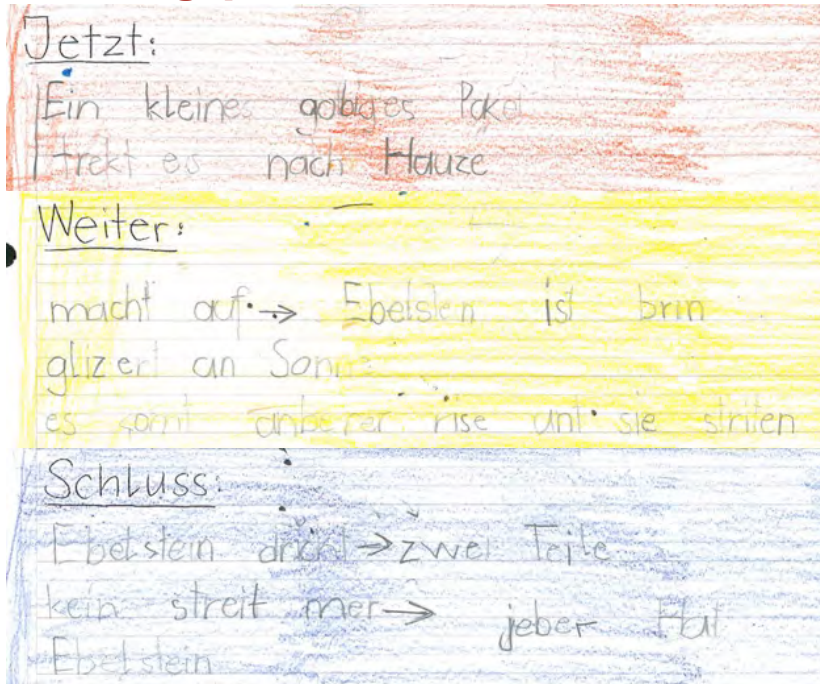 Jetzt:
Ein kleines golbiges Paket
trekt es nach Hauze
Weiter:
macht auf → Ebelstein ist brin
glizert an Sonne
es komt anberer rise unt sie striten
Schluss:
Ebelstein drickt → zwei Teile
kein streit mer → jeber Hat
Ebelstein